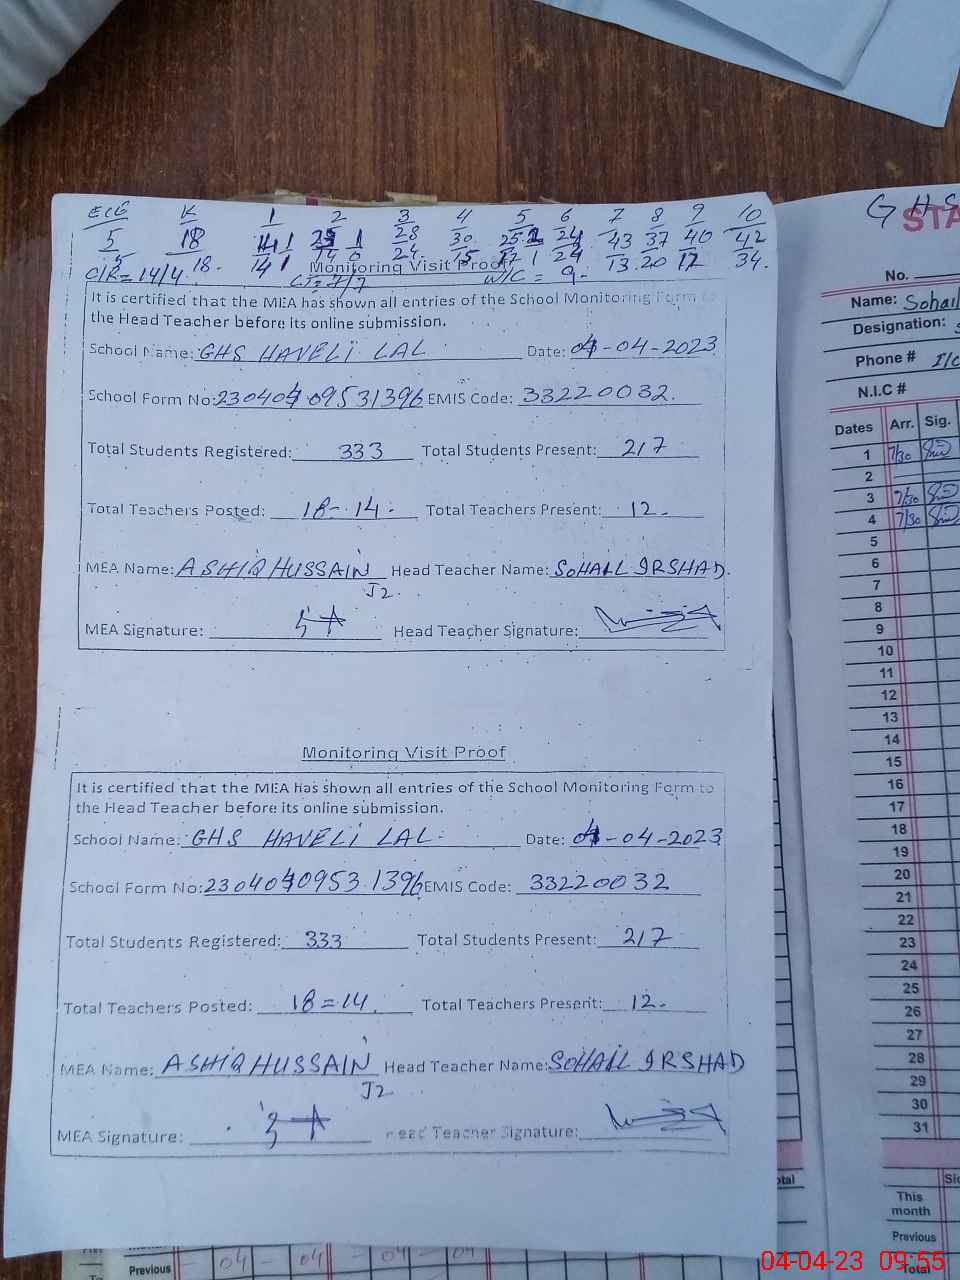 ECE K 1 2 3 4 5 6 7 8 9 10
5 18 28 30 24 43 37 40 42
5 18. 14 1 14 0 24. 15 17 1 24 13. 20 17 34.
C/R= 14/4 C= 7/7 W/C = 9-
Monitoring Visit Proof
It is certified that the MEA has shown all entries of the School Monitoring Form to
the Head Teacher before its online submission.
School Name: GHS HAVELI LAL Date: 04-04-2023
School Form No: 23040409531396 EMIS Code: 33220032.
Total Students Registered: 333 Total Students Present: 217
Total Teachers Posted: 18-14. Total Teachers Present: 12.
MEA Name: ASHIQ HUSSAIN Head Teacher Name: SOHAIL IRSHAD.
J2.
MEA Signature: Head Teacher Signature:
Monitoring Visit Proof
It is certified that the MEA has shown all entries of the School Monitoring Form to
the Head Teacher before its online submission.
School Name: GHS HAVELI LAL Date: 04-04-2023
School Form No: 2304040953.1396 EMIS Code: 33220032
Total Students Registered: 333 Total Students Present: 217
Total Teachers Posted: 18=14. Total Teachers Present: 12.
MEA Name: ASHIQ HUSSAIN Head Teacher Name: SOHAIL IRSHAD
J2
MEA Signature: Head Teacher Signature:
GHS
STA
No.
Name: Sohail
Designation:
Phone # I/C
N.I.C #
Dates Arr. Sig.
1 7/30
2
3 7/30
4 7/30
5
6
7
8
9
10
11
12
13
14
15
16
17
18
19
20
21
22
23
24
25
26
27
28
29
30
31
This
month
Previous
Total
otal
Previous - 04 - 04 - 04 - 04
04-04-23 09:55